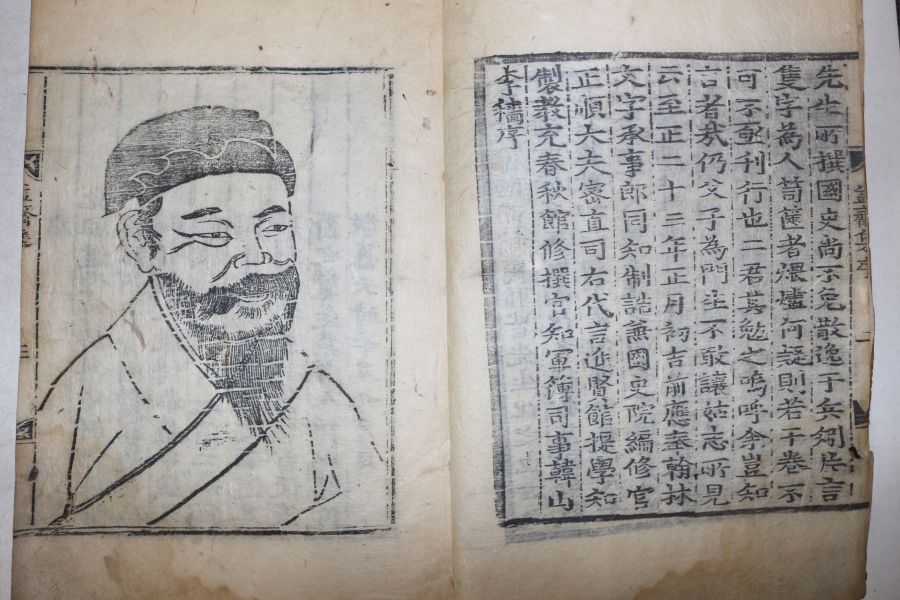 先生所撰國史尚不免散逸于兵矧片言
隻字為人笥篋者煨燼何疑則若干卷不
可不亟刊行也二君其勉之嗚呼余豈知
言者哉仍父子為門生不敢讓姑志所見
云至正二十三年正月初吉前應奉翰林
文字承事郎同知制誥兼國史院編修官
正順大夫密直司右代言進賢館提學知
製教充春秋館修撰官知軍簿司事韓山
李穡序
益齋集序
二
益齋集
三